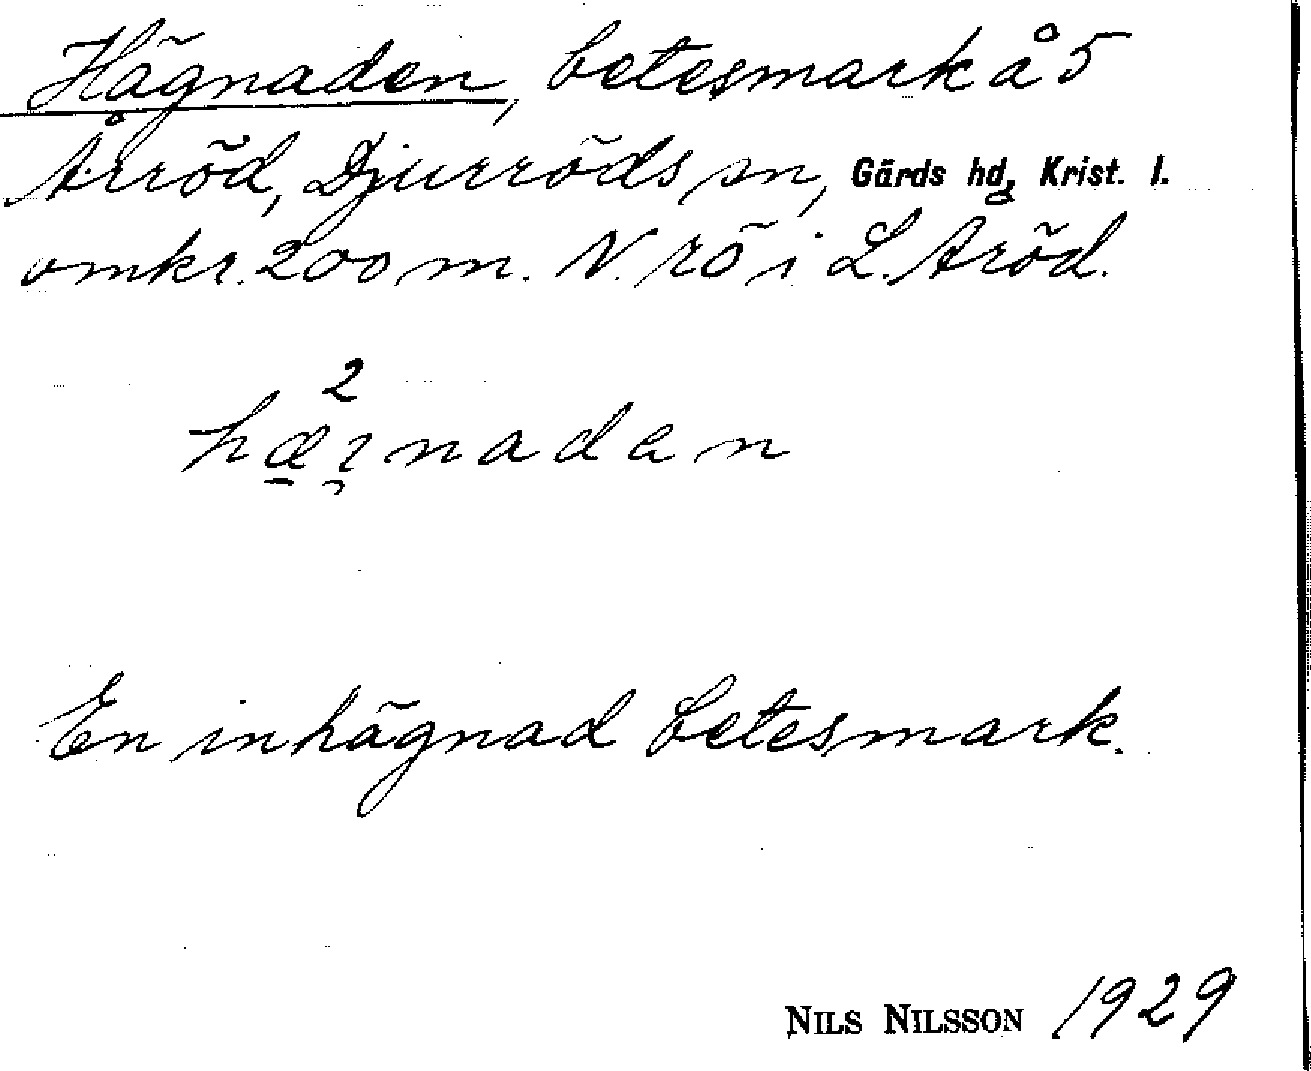 Hägnaden, betesmark å 5
Årröd, Djurröds sn, Gärds hd, Krist. l.
omkr. 200 m. N. rö i L. Aröd.
2
hæi̯naden
En inhägnad betesmark.
NILS NILSSON 1929